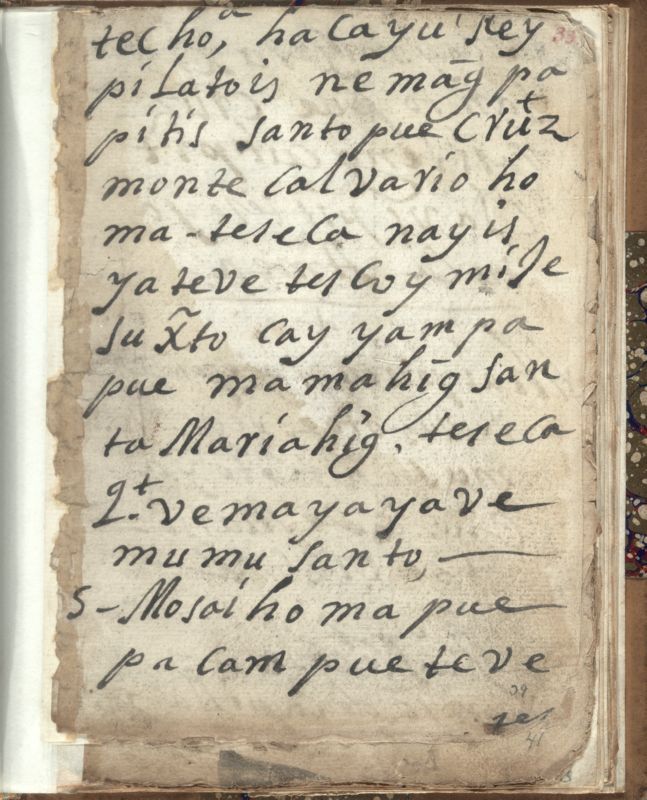 techo,ᵃ hacayu' Rey 39
pilatois nemãg pa
pitis santo pue Cru⁺z
monte Calvario ho
ma-teseca nayis
ya teve tescoy mi Je
su Xp̃to cay yam pa
pue mamahĩg San
ta Mariahĩg, teseca
q.ᵗ vemayayave
mumu santo —
5- Mosoihoma pue
pa cam pue teve
39
tes
41